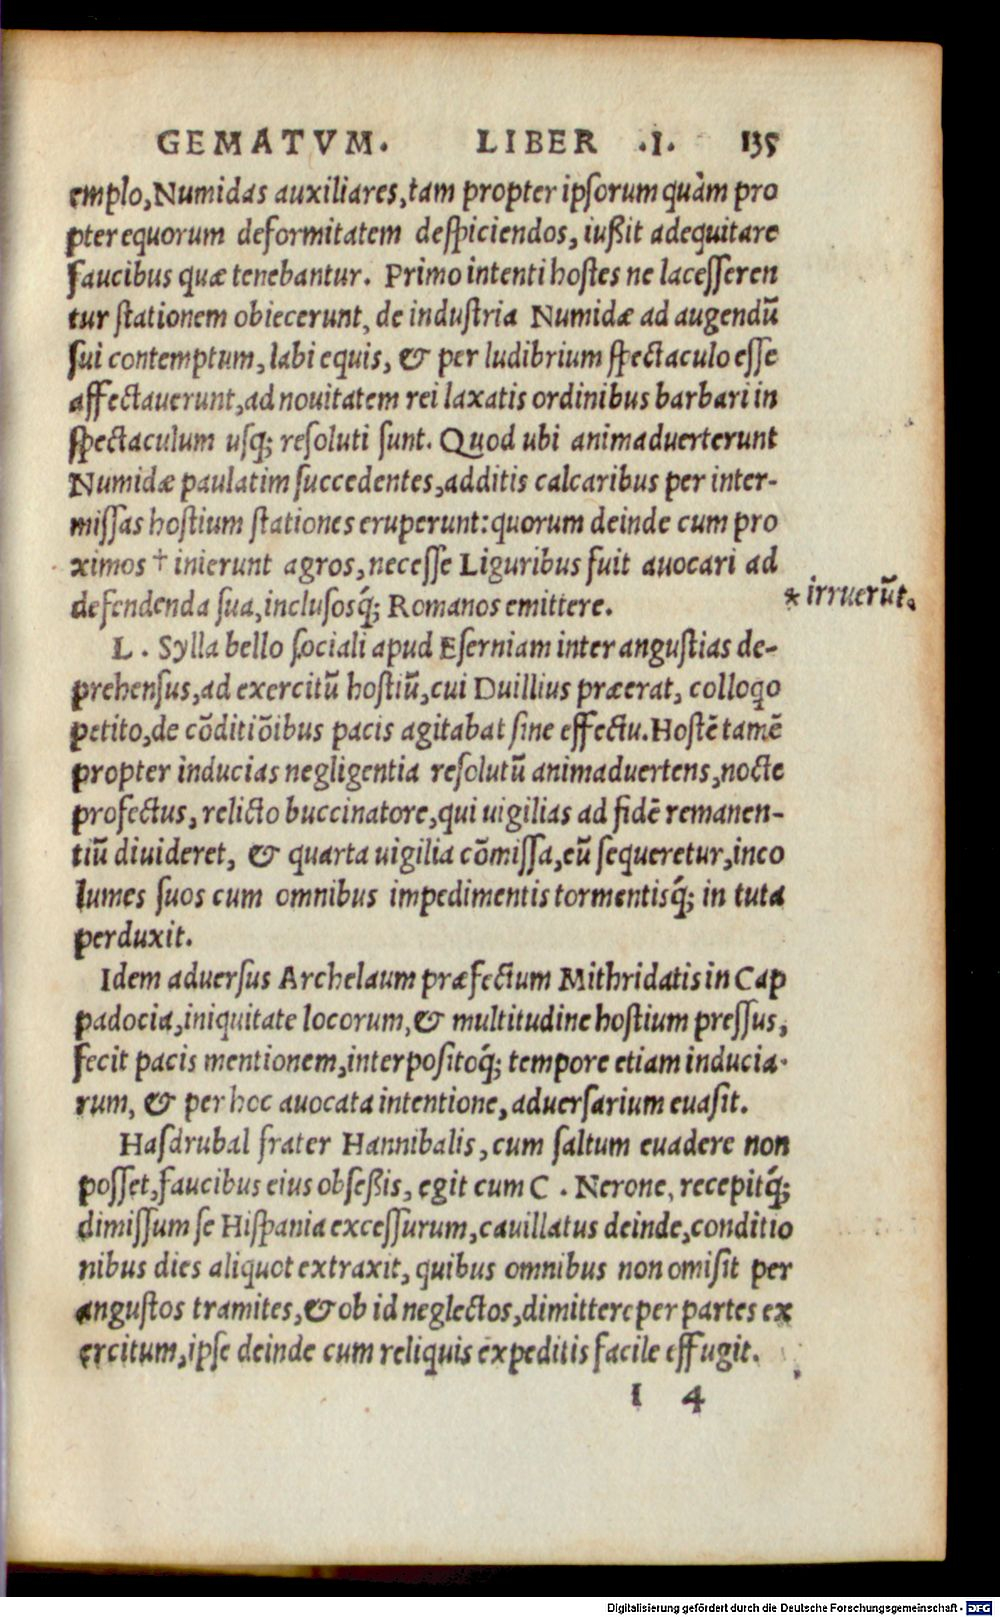 GEMATVM. LIBER .I. 135
emplo, Numidas auxiliares, tam propter ipsorum quàm pro
pter equorum deformitatem despiciendos, iußit adequitare
faucibus quæ tenebantur. Primo intenti hostes ne lacesseren
tur stationem obiecerunt, de industria Numidæ ad augendũ
sui contemptum, labi equis, & per ludibrium spectaculo esse
affectauerunt, ad nouitatem rei laxatis ordinibus barbari in
spectaculum usq; resoluti sunt. Quod ubi animaduerterunt
Numidæ paulatim succedentes, additis calcaribus per inter-
missas hostium stationes eruperunt: quorum deinde cum pro
ximos † inierunt agros, necesse Liguribus fuit auocari ad
defendenda sua, inclusosq́; Romanos emittere.
* irruerũt.
L. Sylla bello sociali apud Eserniam inter angustias de-
prehensus, ad exercitũ hostiũ, cui Duillius præerat, colloqo
petito, de cõditiõibus pacis agitabat sine effectu. Hostẽ tamẽ
propter inducias negligentia resolutũ animaduertens, nocte
profectus, relicto buccinatore, qui uigilias ad fidẽ remanen-
tiũ diuideret, & quarta uigilia cõmissa, eũ sequeretur, inco
lumes suos cum omnibus impedimentis tormentisq́; in tuta
perduxit.
Idem aduersus Archelaum præfectum Mithridatis in Cap
padocia, iniquitate locorum, & multitudine hostium pressus,
fecit pacis mentionem, interpositoq́; tempore etiam inducia-
rum, & per hoc auocata intentione, aduersarium euasit.
Hasdrubal frater Hannibalis, cum saltum euadere non
posset, faucibus eius obseßis, egit cum C. Nerone, recepitq́;
dimissum se Hispania excessurum, cauillatus deinde, conditio
nibus dies aliquot extraxit, quibus omnibus non omisit per
angustos tramites, & ob id neglectos, dimittere per partes ex
ercitum, ipse deinde cum reliquis expeditis facile effugit.
I 4
Digitalisierung gefördert durch die Deutsche Forschungsgemeinschaft - DFG